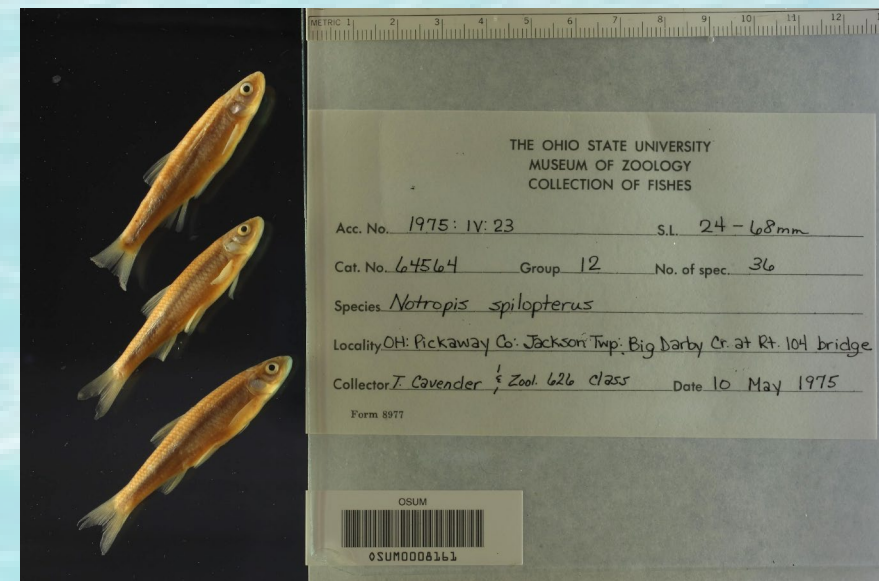 METRIC 1 2 3 4 5 6 7 8 9 10 11 12
THE OHIO STATE UNIVERSITY
MUSEUM OF ZOOLOGY
COLLECTION OF FISHES
Acc. No. 1975: IV: 23 S.L. 24 - 68mm
Cat. No. 64564 Group 12 No. of spec. 36
Species Notropis spilopterus
Locality OH: Pickaway Co: Jackson Twp: Big Darby Cr. at Rt. 104 bridge
Collector T. Cavender & Zool. 626 class Date 10 May 1975
Form 8977
OSUM
OSUM0008161